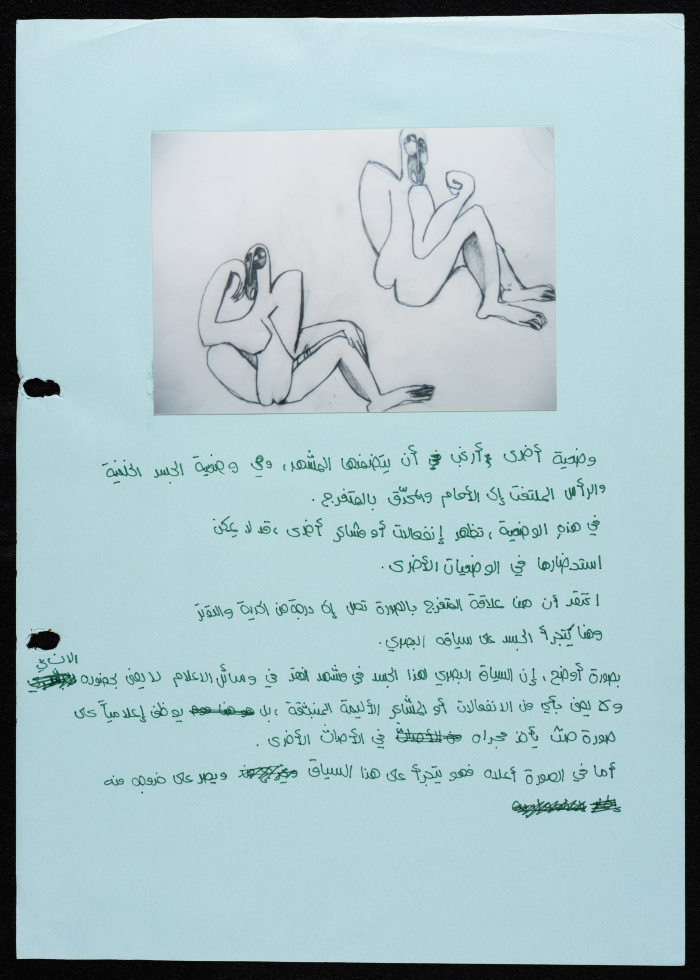 وضعية أخرى أرغب في أن يتضمنها المشهد، وهي وضعية الجسد الخلفية
والرأس الملتفت إلى الأمام والمحدّق بالمتفرج.
في هذه الوضعية، تظهر إنفعالات أو مشاعر أخرى، قد لا يمكن
استحضارها في الوضعيات الأخرى.
اعتقد أن هنا علاقة المتفرج بالصورة تصل إلى درجة من الحرية والتوتر
وهنا يتجرأ الجسد على سياقه البصري.
الانساني
بصورة أوضح، إن السياق البصري لهذا الجسد في مشهد العنف في وسائل الاعلام لا يعنى بحضوره
ولا يعنى بأي من الانفعالات أو المشاعر الأليمة المنبثقة، بل يوظف إعلامياً على
صورة حدث يأخذ مجراه في الأحداث الأخرى.
أما في الصورة أعلاه فهو يتجرأ على هذا السياق ويصر على خروجه منه